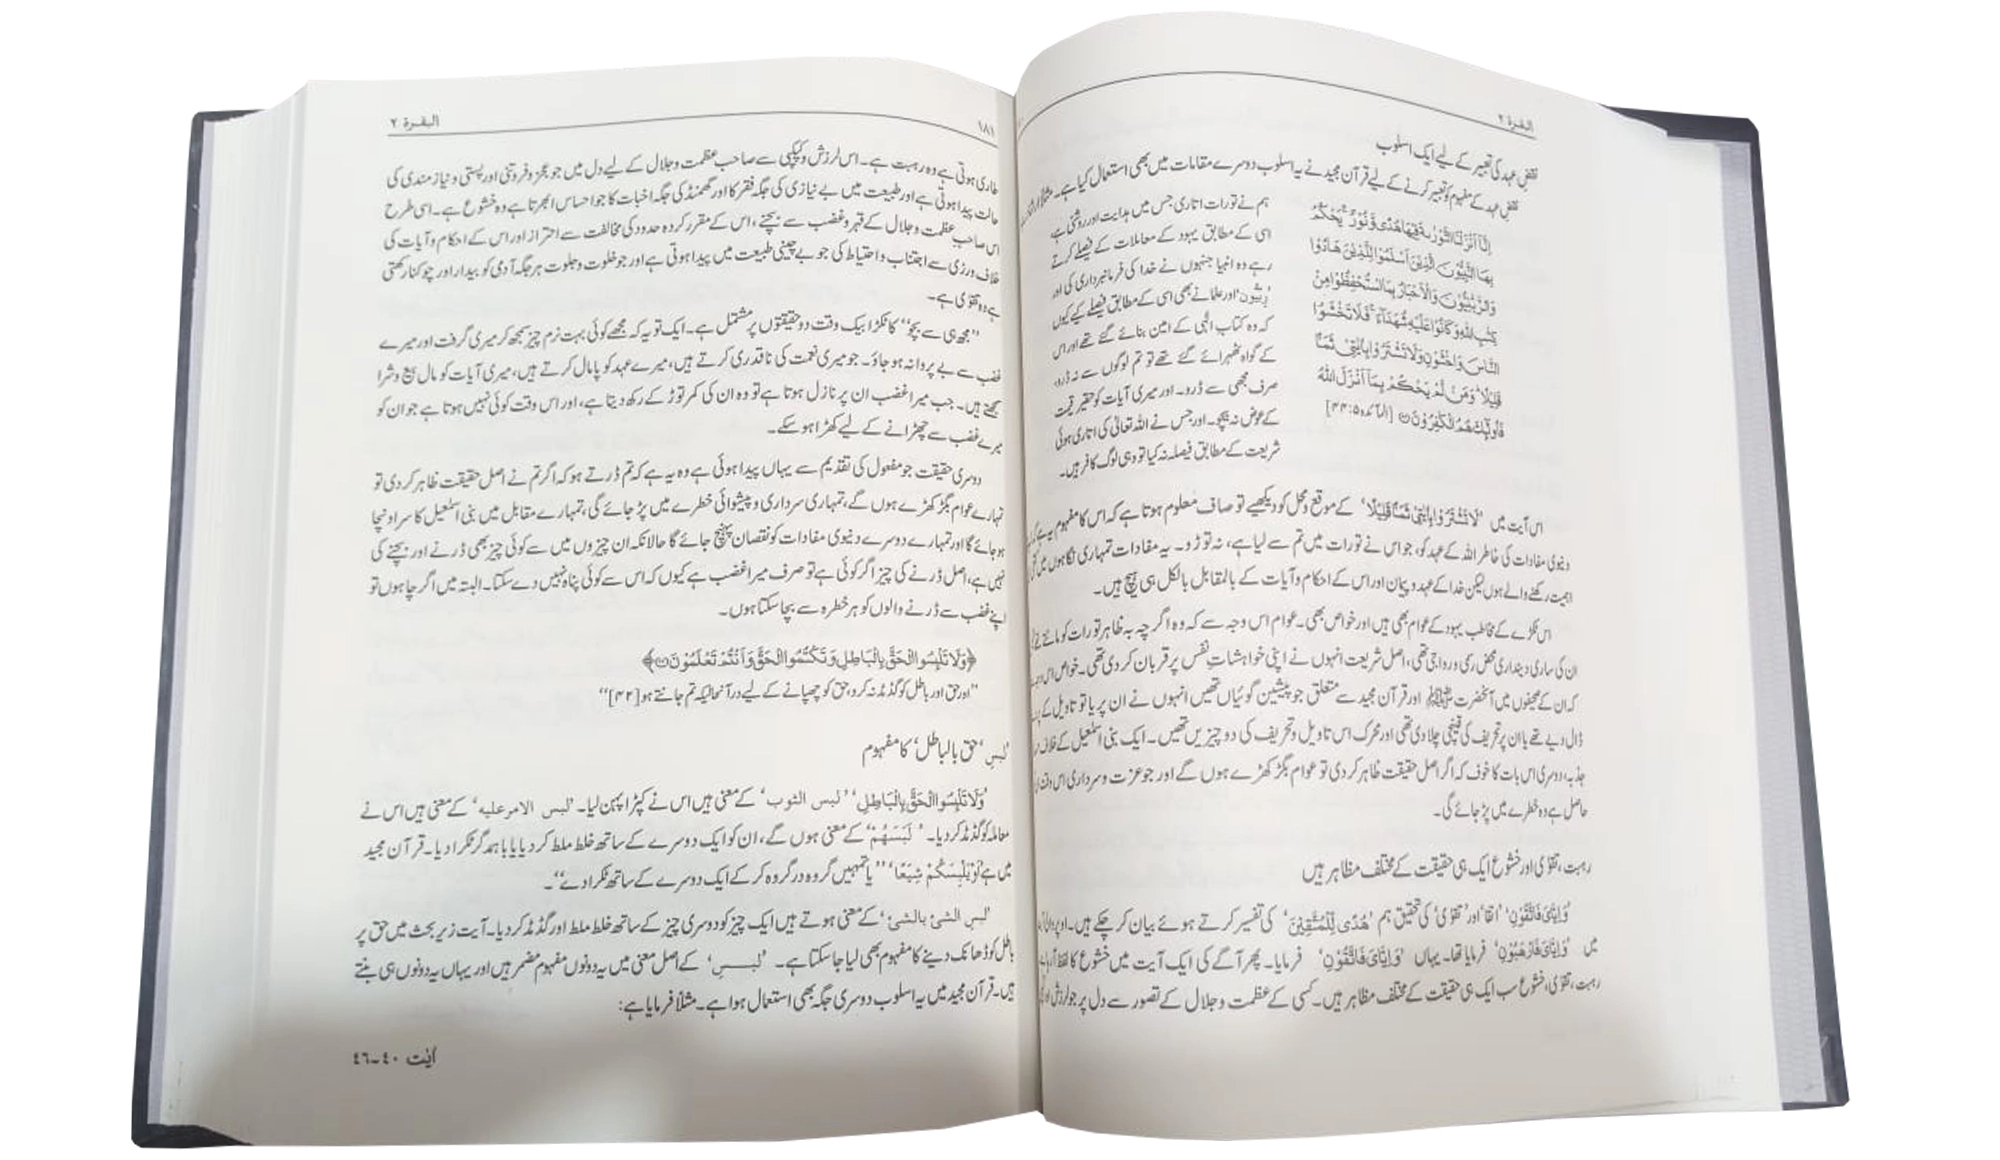 البقرة ۲
نقضِ عہد کی تعبیر کے لیے ایک اسلوب
نقضِ عہد کے مفہوم کو تعبیر کرنے کے لیے قرآن مجید نے یہ اسلوب دوسرے مقامات میں بھی استعمال کیا ہے۔ مثلاً
إِنَّا أَنْزَلْنَا التَّوْرٰىةَ فِيْهَا هُدًى وَّنُوْرٌ ۚ يَحْكُمُ
بِهَا النَّبِيُّوْنَ الَّذِيْنَ اَسْلَمُوْا لِلَّذِيْنَ هَادُوْا
وَالرَّبّٰنِيُّوْنَ وَالْاَحْبَارُ بِمَا اسْتُحْفِظُوْا مِنْ
كِتٰبِ اللّٰهِ وَكَانُوْا عَلَيْهِ شُهَدَآءَ ۚ فَلَا تَخْشَوُا
النَّاسَ وَاخْشَوْنِ وَلَا تَشْتَرُوْا بِاٰيٰتِيْ ثَمَنًا
قَلِيْلًا ؕ وَمَنْ لَّمْ يَحْكُمْ بِمَآ اَنْزَلَ اللّٰهُ
فَاُولٰٓئِكَ هُمُ الْكٰفِرُوْنَ [المائدہ ۵:۴۴]
ہم نے تورات اتاری جس میں ہدایت اور روشنی ہے
اسی کے مطابق یہود کے معاملات کے فیصلے کرتے
رہے وہ انبیا جنہوں نے خدا کی فرمانبرداری کی اور
’ربّیّون‘ اور علما نے بھی اسی کے مطابق فیصلے کیے کیوں
کہ وہ کتاب الٰہی کے امین بنائے گئے تھے اور اس
کے گواہ ٹھہرائے گئے تھے تو تم لوگوں سے نہ ڈرو،
صرف مجھی سے ڈرو۔ اور میری آیات کو حقیر قیمت
کے عوض نہ بیچو۔ اور جس نے اللہ تعالیٰ کی اتاری ہوئی
شریعت کے مطابق فیصلہ نہ کیا تو وہی لوگ کافر ہیں۔
اس آیت میں ’لَا تَشْتَرُوْا بِاٰيٰتِيْ ثَمَنًا قَلِيْلًا‘ کے موقع و محل کو دیکھیے تو صاف معلوم ہوتا ہے کہ اس کا مفہوم یہ ہے کہ
دنیوی مفادات کی خاطر اللہ کے عہد کو، جو اس نے تورات میں تم سے لیا ہے، نہ توڑو۔ یہ مفادات تمہاری نگاہوں میں
اہمیت رکھنے والے ہوں لیکن خدا کے عہد و پیمان اور اس کے احکام و آیات کے بالمقابل بالکل ہی ہیچ ہیں۔
اس ٹکڑے کے مخاطب یہود کے عوام بھی ہیں اور خواص بھی۔ عوام اس وجہ سے کہ وہ اگرچہ بہ ظاہر تورات کو مانتے تھے
ان کی ساری دینداری محض رسمی و رواجی تھی، اصل شریعت انہوں نے اپنی خواہشاتِ نفس پر قربان کر دی تھی۔ خواص اس
کہ ان کے صحیفوں میں آنحضرت ﷺ اور قرآن مجید سے متعلق جو پیشین گوئیاں تھیں انہوں نے ان پر یا تو تاویل کے
ڈال دیے تھے یا ان پر تحریف کی قینچی چلا دی تھی اور محرک اس تاویل و تحریف کی دو چیزیں تھیں۔ ایک بنی اسمٰعیل کے خلاف
جذبہ، دوسری اس بات کا خوف کہ اگر اصل حقیقت ظاہر کر دی تو عوام بگڑ کھڑے ہوں گے اور جو عزت و سرداری اس وقت
حاصل ہے وہ خطرے میں پڑ جائے گی۔
رہبت، تقوٰی اور خشوع ایک ہی حقیقت کے مختلف مظاہر ہیں
’وَاِيَّايَ فَاتَّقُوْنِ‘ ’اتقا‘ اور ’تقوٰی‘ کی تحقیق ہم ’هُدًى لِّلْمُتَّقِيْنَ‘ کی تفسیر کرتے ہوئے بیان کر چکے ہیں۔ اوپر والی
میں ’وَاِيَّايَ فَارْهَبُوْنِ‘ فرمایا تھا۔ یہاں ’وَاِيَّايَ فَاتَّقُوْنِ‘ فرمایا۔ پھر آگے کی ایک آیت میں خشوع کا لفظ
رہبت، تقوٰی، خشوع سب ایک ہی حقیقت کے مختلف مظاہر ہیں۔ کسی کے عظمت و جلال کے تصور سے دل پر جو لرزش اور
البقرة ۲
۱۸۱
طاری ہوتی ہے وہ رہبت ہے۔ اس لرزش و کپکپی سے صاحب عظمت و جلال کے لیے دل میں جو عجز و فروتنی اور پستی و نیازمندی کی
حالت پیدا ہوتی ہے اور طبیعت میں بے نیازی کی جگہ فقر کا اور گھمنڈ کی جگہ اخبات کا جو احساس ابھرتا ہے وہ خشوع ہے۔ اسی طرح
اس صاحب عظمت و جلال کے قہر و غضب سے بچنے، اس کے مقرر کردہ حدود کی مخالفت سے احتراز اور اس کے احکام و آیات کی
خلاف ورزی سے اجتناب و احتیاط کی جو بے چینی طبیعت میں پیدا ہوتی ہے اور جو خلوت و جلوت ہر جگہ آدمی کو بیدار اور چوکنا رکھتی
ہے وہ تقوٰی ہے۔
”مجھ ہی سے بچو“ کا ٹکڑا بیک وقت دو حقیقتوں پر مشتمل ہے۔ ایک تو یہ کہ مجھے کوئی بہت نرم چیز سمجھ کر میری گرفت اور میرے
غضب سے بے پروا نہ ہو جاؤ۔ جو میری نعمت کی ناقدری کرتے ہیں، میرے عہد کو پامال کرتے ہیں، میری آیات کو مال بیع و شرا
سمجھتے ہیں۔ جب میرا غضب ان پر نازل ہوتا ہے تو وہ ان کی کمر توڑ کے رکھ دیتا ہے، اور اس وقت کوئی نہیں ہوتا ہے جو ان کو
میرے غضب سے چھڑانے کے لیے کھڑا ہو سکے۔
دوسری حقیقت جو مفعول کی تقدیم سے یہاں پیدا ہوئی ہے وہ یہ ہے کہ تم ڈرتے ہو کہ اگر تم نے اصل حقیقت ظاہر کر دی تو
تمہارے عوام بگڑ کھڑے ہوں گے، تمہاری سرداری و پیشوائی خطرے میں پڑ جائے گی، تمہارے مقابل میں بنی اسمٰعیل کا سر اونچا
ہو جائے گا اور تمہارے دوسرے دنیوی مفادات کو نقصان پہنچ جائے گا حالانکہ ان چیزوں میں سے کوئی چیز بھی ڈرنے اور بچنے کی
نہیں ہے، اصل ڈرنے کی چیز اگر کوئی ہے تو صرف میرا غضب ہے کیوں کہ اس سے کوئی پناہ نہیں دے سکتا۔ البتہ میں اگر چاہوں تو
اپنے غضب سے ڈرنے والوں کو ہر خطرہ سے بچا سکتا ہوں۔
﴿وَلَا تَلْبِسُوا الْحَقَّ بِالْبَاطِلِ وَتَكْتُمُوا الْحَقَّ وَاَنْتُمْ تَعْلَمُوْنَ﴾
”اور حق اور باطل کو گڈمڈ نہ کرو، حق کو چھپانے کے لیے درآنحالیکہ تم جانتے ہو [۴۲]“
’لبسِ ’حق بالباطل‘ کا مفہوم
’وَلَا تَلْبِسُوا الْحَقَّ بِالْبَاطِلِ‘ ’لبس الثوب‘ کے معنی ہیں اس نے کپڑا پہن لیا۔ ’لبس الامر علیه‘ کے معنی ہیں اس نے
معاملہ کو گڈمڈ کر دیا۔ ’لَبَسَهُمْ‘ کے معنی ہوں گے، ان کو ایک دوسرے کے ساتھ خلط ملط کر دیا یا باہمدگر ٹکرا دیا۔ قرآن مجید
میں ہے ’اَوْ يَلْبِسَكُمْ شِيَعًا‘ ”یا تمہیں گروہ در گروہ کر کے ایک دوسرے کے ساتھ ٹکرا دے“۔
’لبس الشئ بالشئ‘ کے معنی ہوتے ہیں ایک چیز کو دوسری چیز کے ساتھ خلط ملط اور گڈمڈ کر دیا۔ آیت زیر بحث میں حق پر
باطل کو ڈھانک دینے کا مفہوم بھی لیا جا سکتا ہے۔ ’لبس‘ کے اصل معنی میں یہ دونوں مفہوم مضمر ہیں اور یہاں یہ دونوں ہی بنتے
ہیں۔ قرآن مجید میں یہ اسلوب دوسری جگہ بھی استعمال ہوا ہے۔ مثلاً فرمایا ہے:
آیت ٤٠-٤٦